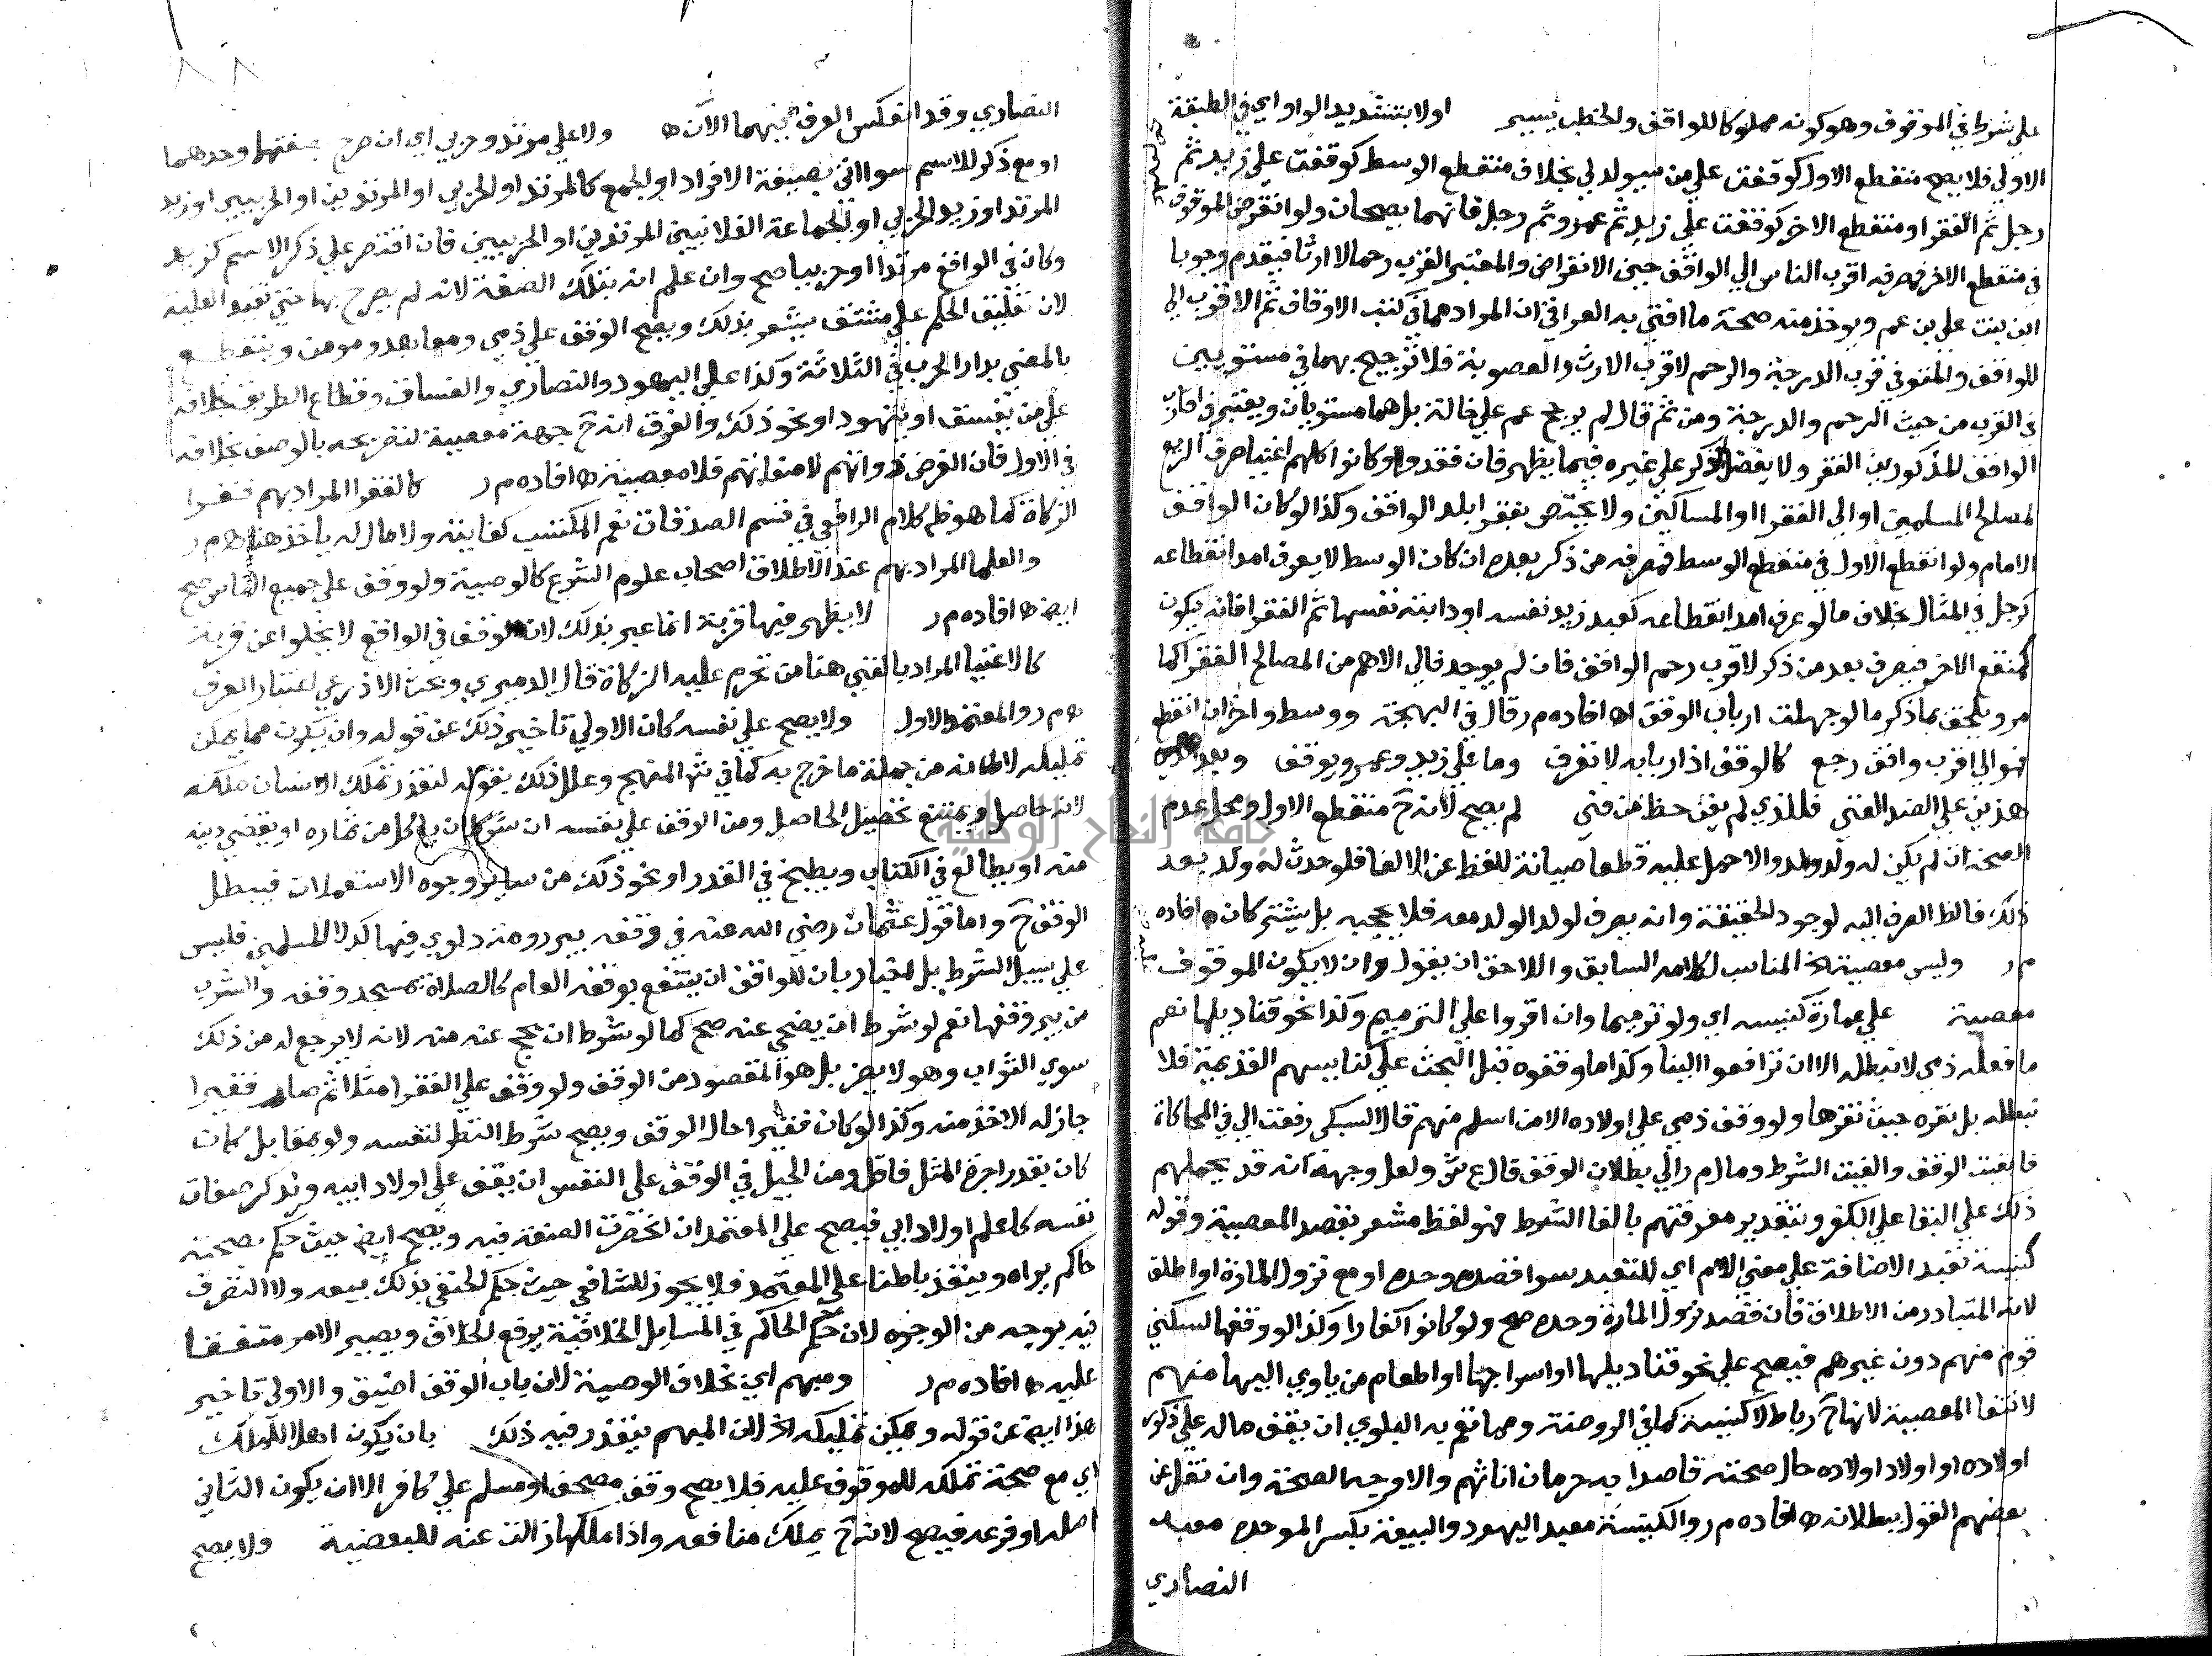 على شرط في الموقوف وهو كونه مملوكا للواقف والخطب يسير اولا بتشديد الواو اي في الطبقة
الاولي فلا يصح منقطع الاول كوقفت علي من سيولد لي بخلاف منقطع الوسط كوقفت علي زيد ثم
رجل ثم الفقرا او منقطع الاخر كوقفت علي زيد ثم عمرو ثم رجل فانهما يصحان ولو انقرض الموقوف
في منقطع الاخر فمصرفه اقرب الناس الي الواقف حين الانقراض والمعتبر القرب رحما لا ارثا فيقدم وجوبا
ابن بنت علي بن عم ويوخذ منه صحة ما افتي به العراقي ان المراد بما في كتب الاوقاف ثم الاقرب الي
للواقف والمتوفي قرب الدرجة والرحم لا قرب الارث والعصوبة فلا ترجيح بهما في مستويين
في القرب من حيث الرحم والدرجة ومن ثم قال لم يرجح عم علي خالة بل هما مستويان ويعتبر في اقارب
الواقف المذكورين الفقر ولا يفضل الذكر علي غيره فيما يظهر فان فقدوا او كانوا كلهم اغنيا صرف الريع
لمصلح المسلمين او الي الفقرا او المساكين ولا يختص بفقرا بلد الواقف وكذا لو كان الواقف
الامام ولو انقطع الاول في منقطع الوسط فمصرفه من ذكر بعده ان كان الوسط لا يعرف امد انقطاعه
كرجل في المثال بخلاف ما لو عرف امد انقطاعه كعبد زيد نفسه او دابته نفسها ثم الفقرا فانه يكون
كمنقع الاخر فيصرف بعد من ذكر لاقرب رحم الواقف فان لم يوجد فالي الاهم من المصالح الفقرا كما
مر ويلحق بما ذكر ما لو جهلت ارباب الوقف اه افاده م ر قال في البهجة ووسط واخر ان انقطع
فهو الي اقرب واقف رجع كالوقف اذ اربابه لا تعرف وما علي زيد وعمرو يوقف وبعد
هذين علي الضد الفتي فللذي لم يفن حظ من فتي لم يصح لانه ح منقطع الاول ومحل عدم
الصحة ان لم يكن له ولد ولد والا حمل عليه قطعا صيانة للفظ عن الالغا فلو حدث له ولد بعد
ذلك فالظ الصرف اليه لوجود الحقيقة وانه يصرف لولد الولد معه فلا يحجبه بل يشتركان ه افاده
م ر وليس معصية الخ المناسب لكلامه السابق واللاحق ان يقول وان لا يكون الموقوف
معصية علي عمارة كنيسه اي ولو ترميما وان اقروا علي الترميم وكذا نحو قناديلها نعم
ما فعله ذمي لا نبطله الا ان ترافعوا الينا وكذا ما وقفوه قبل البحث علي كنايسهم القديمة فلا
نبطله بل نقره حيث نقرها ولو وقف ذمي علي اولاده الا من اسلم منهم قال السبكي رفعت الي في المحاكاة
فابقيت الوقف والغيت الشرط ومال م ر الي بطلان الوقف قال ع ش ولعل وجهه انه قد يحملهم
ذلك علي البقا علي الكفر وبتقدير معرفتهم بالغا الشرط فهو لفظ مشعر بقصد المعصية وقوله
كنيسة تعبد الاضافة علي معني اللام اي للتعبد سوا قصده وحده او مع نزول المارة او اطلق
لانه المتبادر من الاطلاق فان قصد نزول المارة وحده صح ولو كانوا كفارا وكذا لو وقفها لسكني
قوم منهم دون غيرهم فيصح علي نحو قناديلها او اسراجها او اطعام من ياوي اليها منهم
لانتفا المعصية لانها ح رباط لا كنيسة كما في الروضة ومما تعم به البلوي ان يقف ماله علي ذكور
اولاده او اولاد اولاده حال صحته قاصدا به حرمان اناثهم والاوجه الصحة وان نقل عن
بعضهم القول ببطلانه ه افاده م ر والكنيسة معبد اليهود والبيعة بكسر الموحده معبد
النصاري
النصاري وقد انعكس العرف فيهما الان ه ولا علي مرتد وحربي اي ان صرح بصفتهما وحدهما
او مع ذكر الاسم سوا اتي بصيغة الافراد او الجمع كالمرتد او الحربي او المرتدين او الحربيين او زيد
المرتد او زيد الحربي او الجماعة الفلانيين المرتدين او الحربيين فان اقتصر علي ذكر الاسم كزيد
وكان في الواقع مرتدا او حربيا صح وان علم انه بتلك الصفة لانه لم يصرح بها حتي تفيد العلية
لان تعليق الحكم علي مشتق يشعر بذلك ويصح الوقف علي ذمي ومعاهد ومومن وينقطع
بالمعني بدار الحرب في الثلاثة وكذا علي اليهود والنصاري والفساق وقطاع الطريق بخلافه
علي من يفسق او يتهود او نحو ذلك والفرق انه ح جهة معصية لتصريحه بالوصف بخلافه
في الاول فان الغرض ذواتهم لا صفاتهم فلا معصية ه افاده م ر كالفقرا المراد بهم فقرا
الزكاة كما هو ظ كلام الرافعي في قسم الصدقات نعم المكتسب كفايته ولا مال له ياخذ هنا ه م ر
والعلما المراد بهم عند الاطلاق اصحاب علوم الشرع كالوصية ولو وقف علي جميع الناس صح
ايضا ه افاده م ر لا يظهر فيها قربة انما عبر بذلك لان الوقف في الواقع لا يخلوا عن قربة
كالاغنيا المراد بالغني هنا من تحرم عليه الزكاة قال الدميري وبحث الاذرعي اعتبار العرف
ه م ر والمعتمد الاول ولا يصح علي نفسه كان الاولي تاخير ذلك عن قوله وان يكون مما يمكن
تمليكه لاطانه من جملة ما خرج به كما في ش المنهج وعلل ذلك بقوله لتعذر تملك الانسان ملكه
لانه حاصل ويمتنع تحصيل الحاصل ومن الوقف علي نفسه ان شرط ان ياكل من ثماره او يقضي دينه
منه او يطالع في الكتاب ويطبخ في القدر او نحو ذلك من ساير وجوه الاستعملات فيبطل
الوقف ح واما قول عثمان رضي الله عنه في وقفه بير رومة دلوي فيها كدلا المسلمين فليس
علي سبيل الشرط بل اخبار بان للواقف ان ينتفع بوقفه العام كالصلاة بمسجد وقفه والشرب
من بير وقفها نعم لو شرط ان يضحي عنه صح كما لو شرط ان يحج عنه منه لانه لا يرجع له من ذلك
سوي الثواب وهو لا يضر بل هو المقصود من الوقف ولو وقف علي الفقرا مثلا ثم صار فقيرا
جاز له الاخذ منه وكذا لو كان فقيرا حال الوقف ويصح شرط النظر لنفسه ولو بمقابل كان
كان بقدر اجرة المثل فاقل ومن الحيل في الوقف علي النفس ان يقف علي اولاد ابيه ويذكر صفات
نفسه كاعلم اولاد ابي فيصح علي المعتمد ان انحصرت الصفة فيه ويصح ايضا حيث حكم بصحته
حاكم يراه وينفذ باطنا علي المعتمد فلا يجوز للشافعي حيث حكم الحنفي بذلك بيعه ولا التصرف
فيه بوجه من الوجوه لان حكم الحاكم في المسايل الخلافية يرفع الخلاف ويصير الامر متفقا
عليه ه افاده م ر ومبهم اي بخلاف الوصية لان باب الوقف اضيق والاولي تاخير
هذا ايضا عن قوله ويمكن تمليكه اذ لان المبهم يتعذر فيه ذلك بان يكون اهلا للملك
اي مع صحة تملكه للموقوف عليه فلا يصح وقف مصحف او مسلم علي كافر الا ان يكون الثاني
اصله او فرعه فيصح لانه ح يملك منافعه واذا ملكها زالت عنه للبعضية ولا يصح